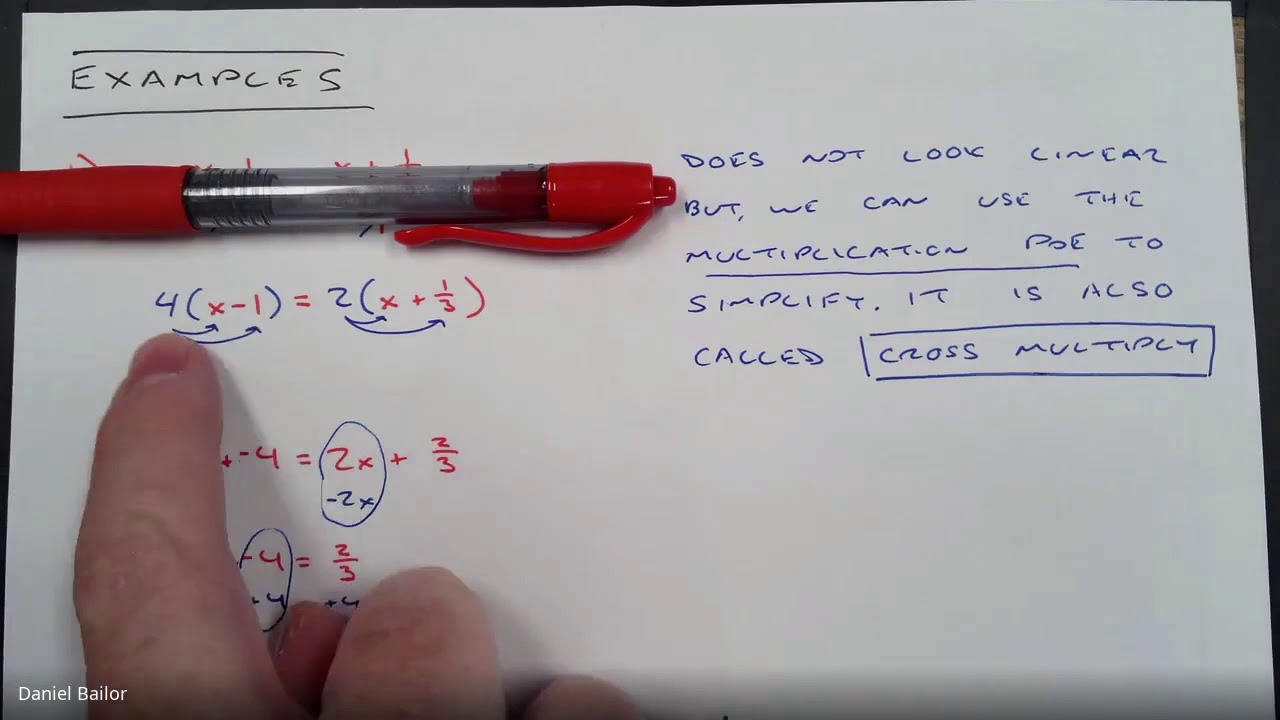 EXAMPLES
4(x-1) = 2(x+1/3)
-4 = 2x + 2/3
-2x
-4 = 2/3
+4 +4
DOES NOT LOOK LINEAR
BUT, WE CAN USE THE
MULTIPLICATION POE TO
SIMPLIFY. IT IS ALSO
CALLED CROSS MULTIPLY
Daniel Bailor